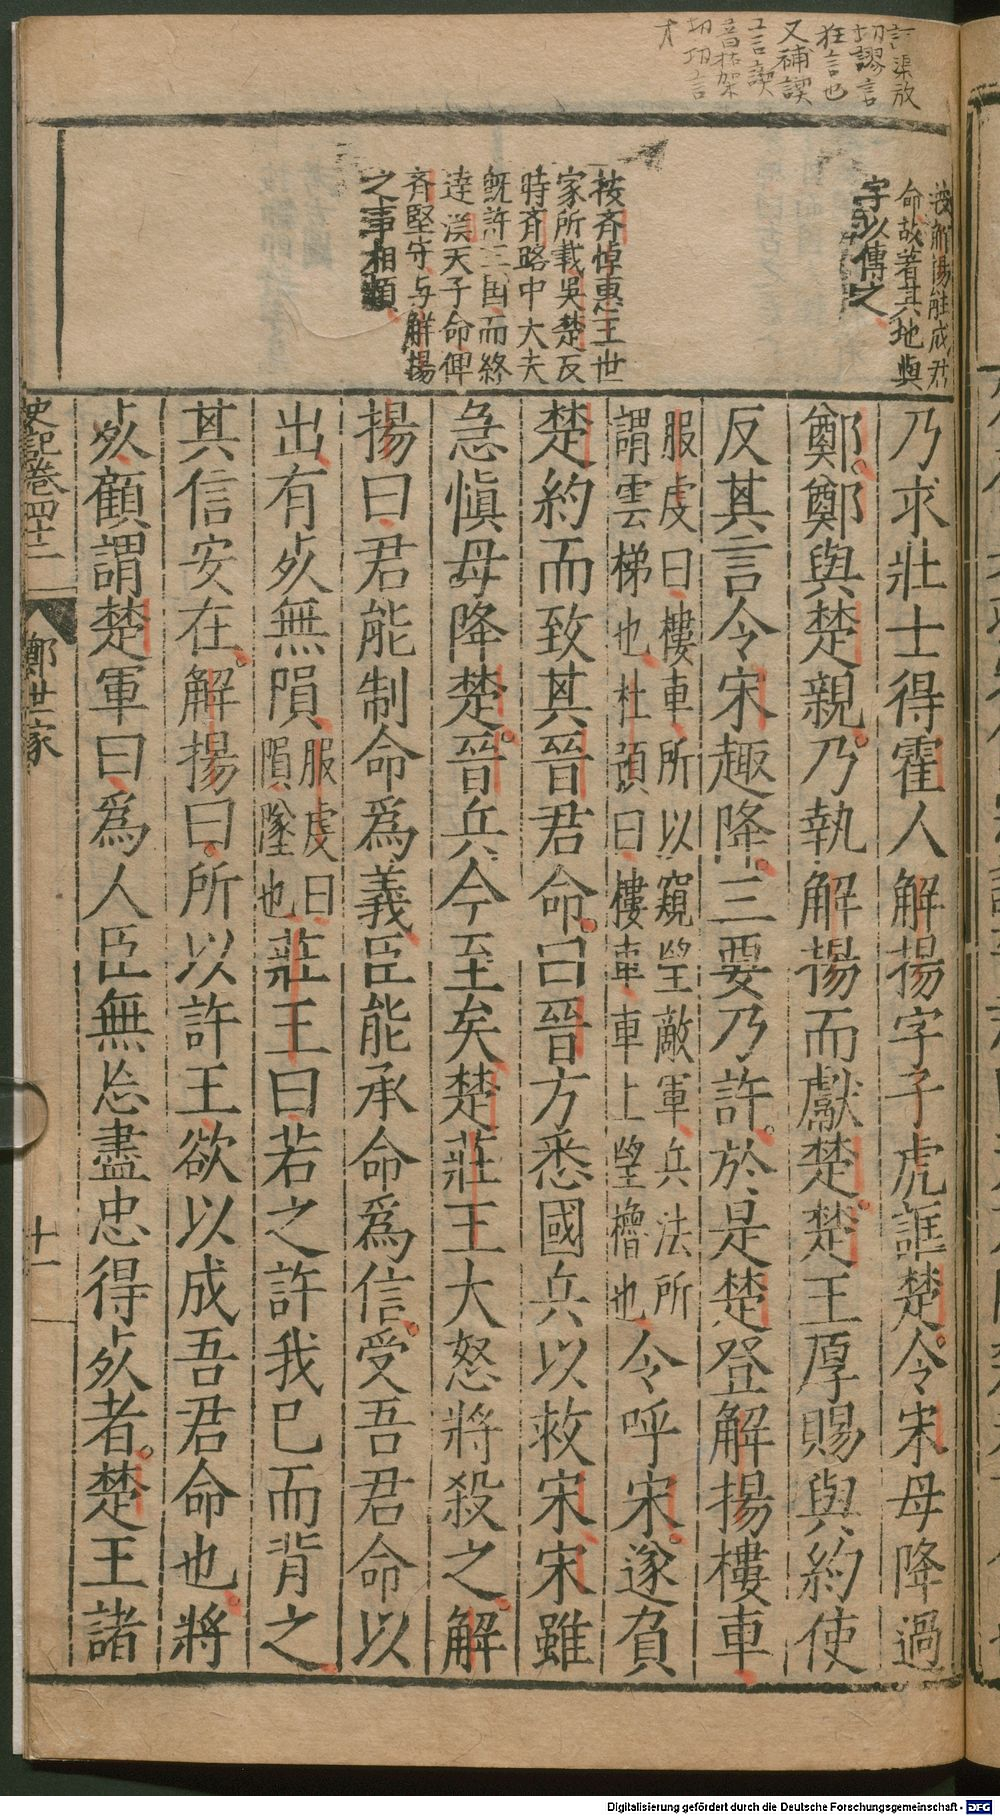 訁渠放
切謬言
狂言也
又補謨
言謨
音拈架
切切言
才
按解揚能成君
命故著其地與
字以傳之
按齊悼惠王世
家所載吳楚反
時齊路中大夫
既許三国而終
達漢天子命俾
齊堅守与解揚
之事相類
乃求壯士得霍人解揚字子虎誆楚令宋毋降過
鄭鄭與楚親乃執解揚而獻楚楚王厚賜與約使
反其言令宋趣降三要乃許於是楚登解揚樓車
服虔曰樓車所以窺望敵軍兵法所
謂雲梯也杜預曰樓車車上望櫓也令呼宋遂負
楚約而致其晉君命曰晉方悉國兵以救宋宋雖
急慎毋降楚晉兵今至矣楚莊王大怒將殺之解
揚曰君能制命爲義臣能承命爲信受吾君命以
出有死無隕服虔曰
隕墜也莊王曰若之許我已而背之
其信安在解揚曰所以許王欲以成吾君命也將
死顧謂楚軍曰爲人臣無忘盡忠得死者楚王諸
史記卷四十二 鄭世家 十一
Digitalisierung gefördert durch die Deutsche Forschungsgemeinschaft - DFG